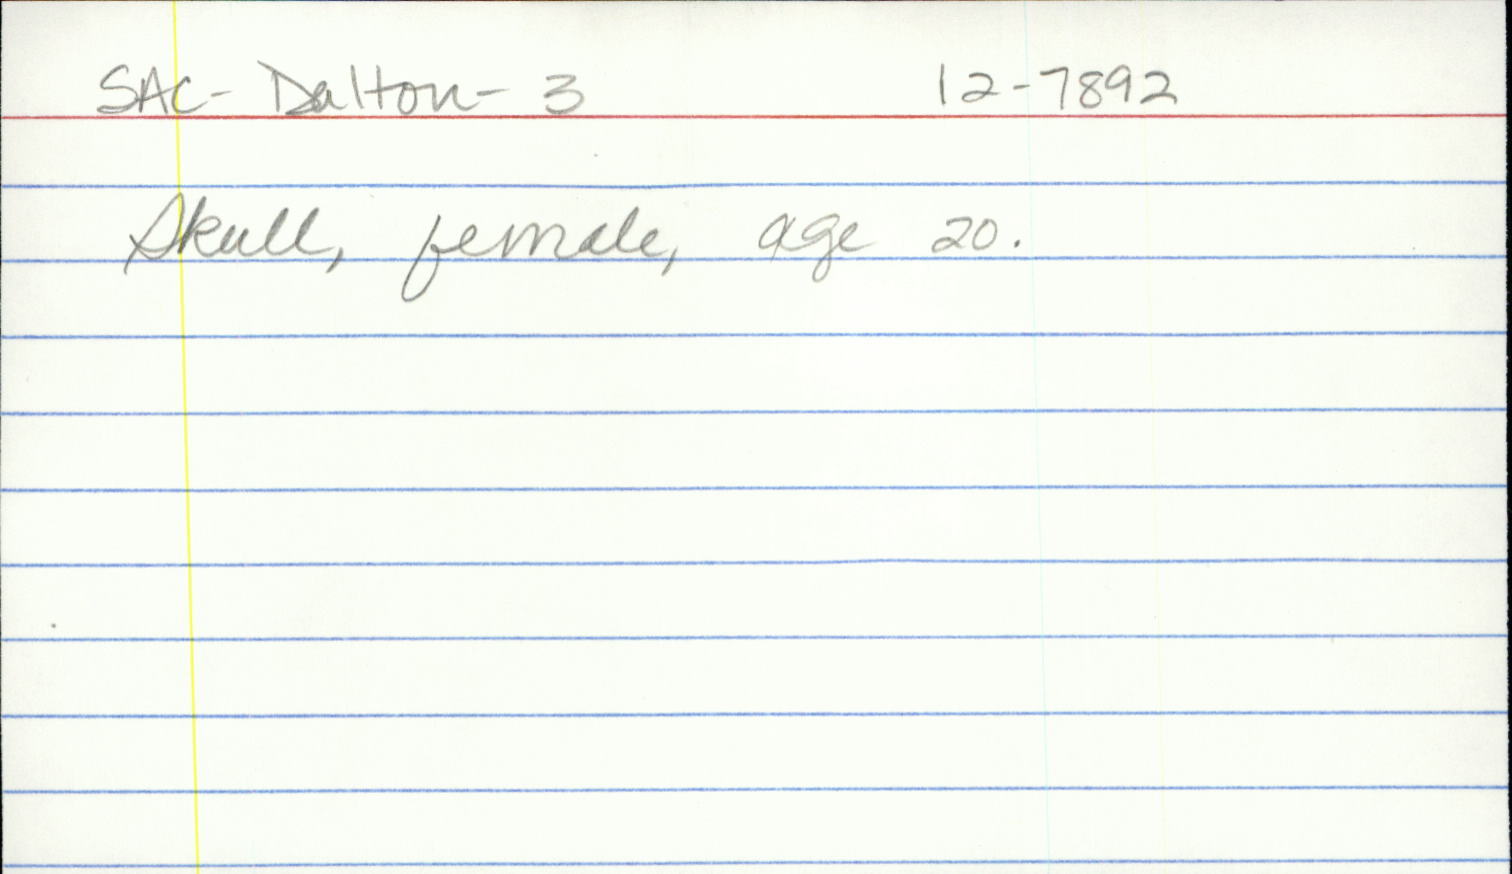 SAC-Dalton-3 12-7892
Skull, female, age 20.